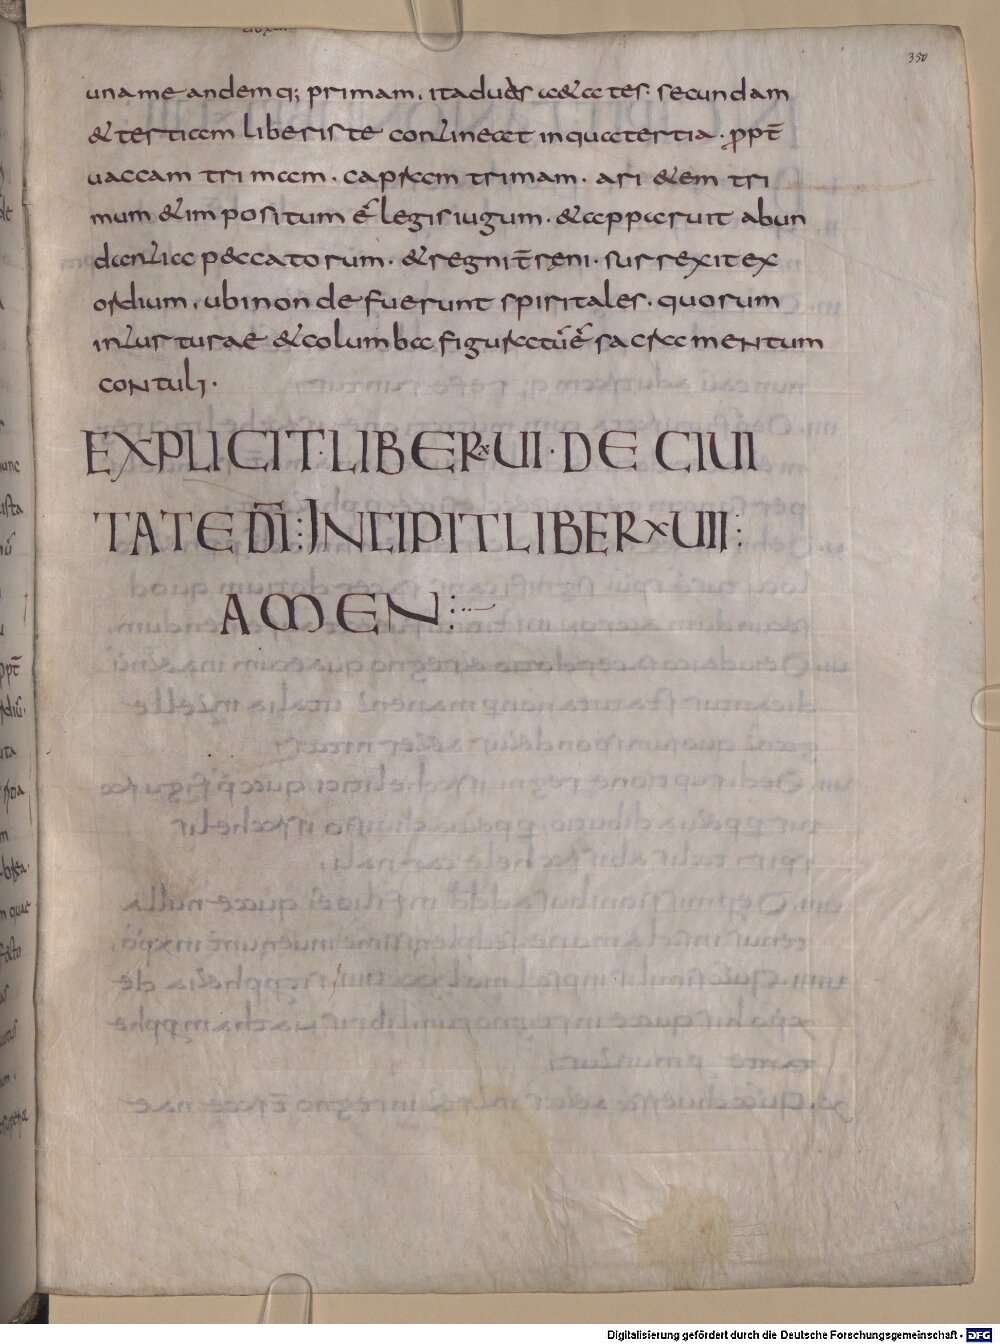 350
una me andemq; primam. ita duas aetates. secundam
& tertiam liber iste contineat in quatertia. ppt̄
uaccam trimam. capram trimam. ari&em tri
mum & impositum ē legis iugum. & apparuit abun
dantia peccatorum. & regni t̄reni. surrexit ex
ordium. ubi non defuerunt spiritales. quorum
inturturae & columba figuratū ē sacramentum
contuli.
EXPLICIT·LIBER·XUI·DE CIUI
TATE DĪ:INCIPIT LIBER XUII:
AMEN:
Digitalisierung gefördert durch die Deutsche Forschungsgemeinschaft - DFG